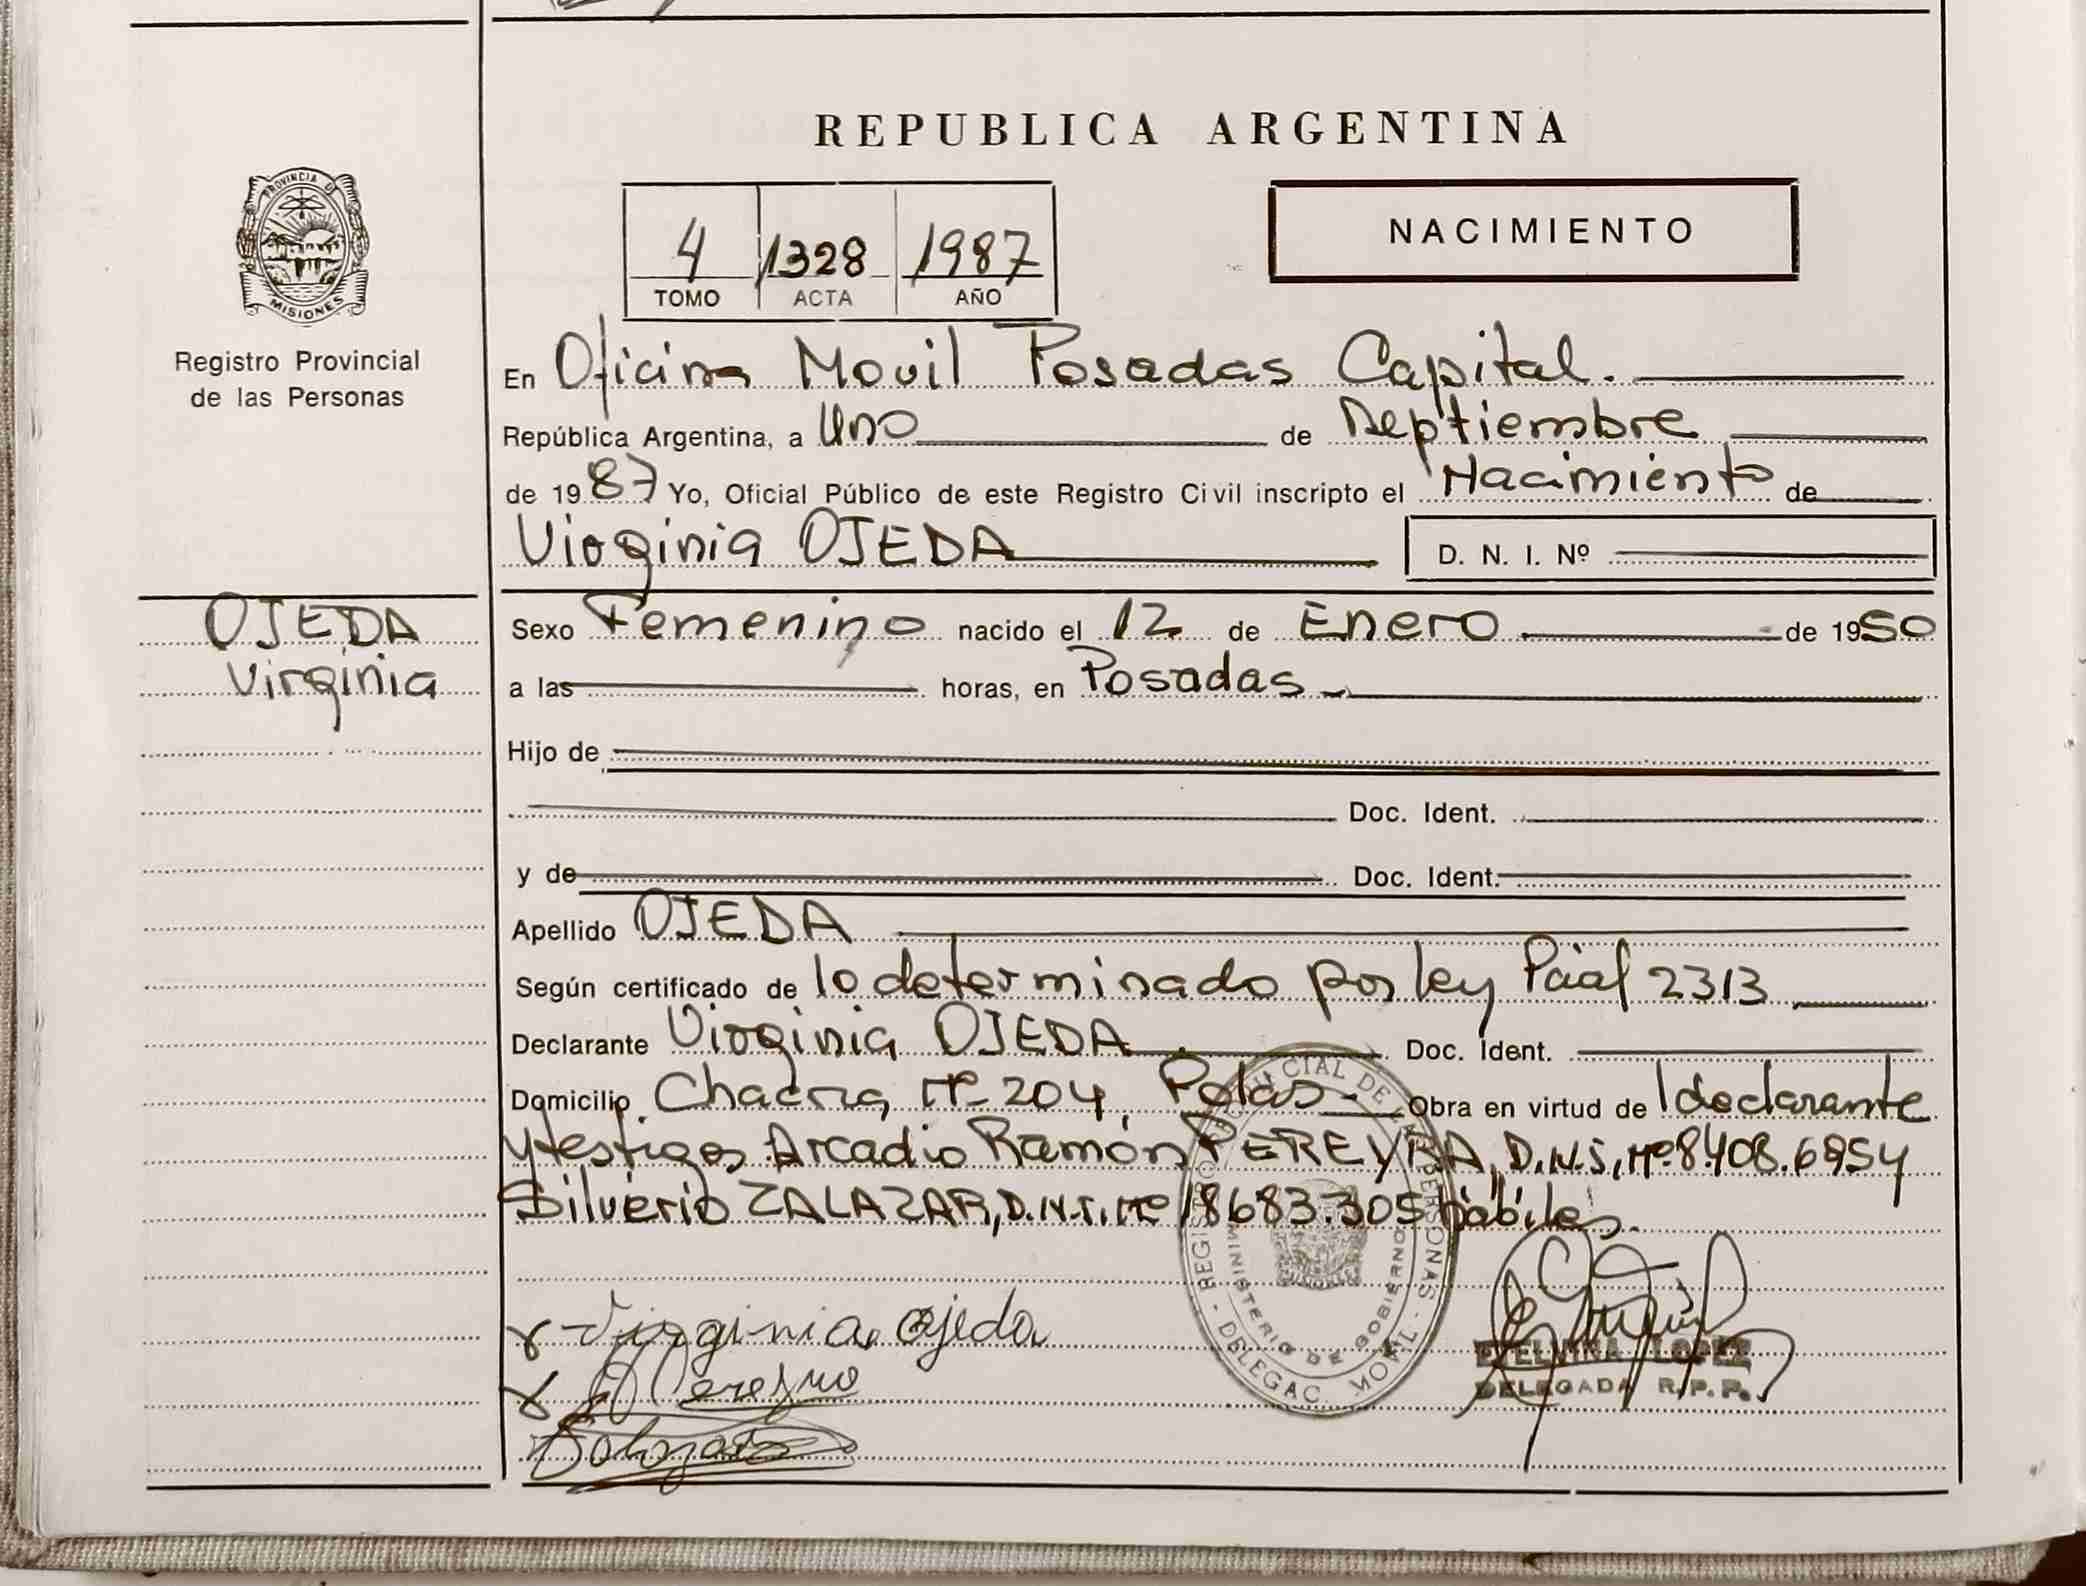 REPUBLICA ARGENTINA
PROVINCIA D
MISIONES
Registro Provincial
de las Personas
4 1328 1987
TOMO ACTA AÑO
NACIMIENTO
En Oficina Movil Posadas Capital.
República Argentina, a Uno de Septiembre
de 1987 Yo, Oficial Público de este Registro Civil inscripto el Nacimiento de
Virginia OJEDA D. N. I. Nº
OJEDA
Virginia
Sexo Femenino nacido el 12 de Enero de 1950
a las horas, en Posadas
Hijo de
Doc. Ident.
y de Doc. Ident.
Apellido OJEDA
Según certificado de lo determinado por ley Pcial 2313
Declarante Virginia OJEDA Doc. Ident.
Domicilio Chacra Nº 204, Pdas. Obra en virtud de declarante
y testigos Arcadio Ramón PEREYRA, D.N.I. Nº 8.408.695 y
Silverio ZALAZAR, D.N.I. Nº 18683.305 hábiles.
REGISTRO PROVINCIAL DE LAS PERSONAS
MINISTERIO DE GOBIERNO
DELEGAC. MOVIL
Virginia ojeda
ETELVINA LOPEZ
DELEGADA R.P.P.